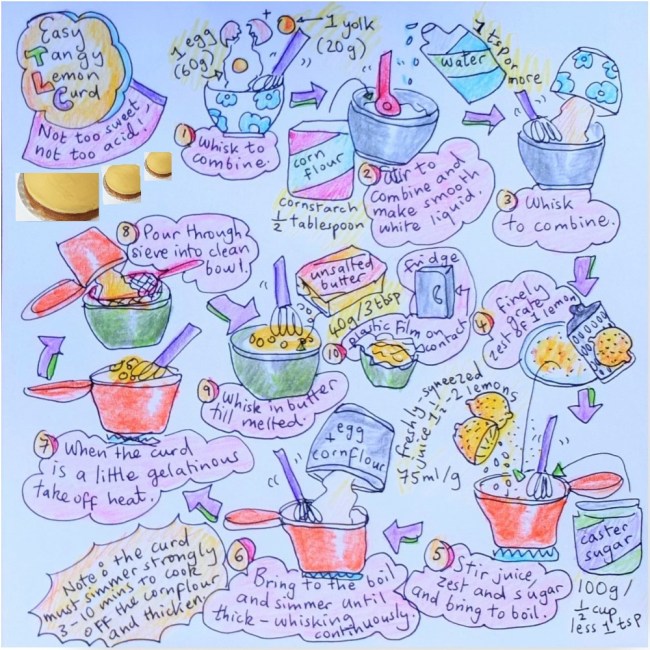 Easy
Tangy
Lemon
Curd
Not too sweet,
not too acid!
1 egg
(60g)
+
1 yolk
(20g)
1 Whisk to
combine.
corn
flour
cornstarch
1/2 tablespoon
water
1 tsp or
more
2 Stir to
combine and
make smooth
white liquid.
3 Whisk
to combine.
4 finely
grate
zest of 1 lemon
freshly-squeezed
juice 1 1/2-2 lemons
75ml/g
caster
sugar
100g/
1/2 cup
less 1 tsp
5 Stir juice,
zest and sugar
and bring to boil.
egg
+
cornflour
6 Bring to the boil
and simmer until
thick-whisking
continuously.
Note: the curd
must simmer strongly
3-10 mins to cook
off the cornflour
and thicken.
7 When the curd
is a little gelatinous
take off heat.
8 Pour through
sieve into clean
bowl.
unsalted
butter
40g/3 tbsp
9 Whisk in butter
till melted.
fridge
10 plastic film on
contact